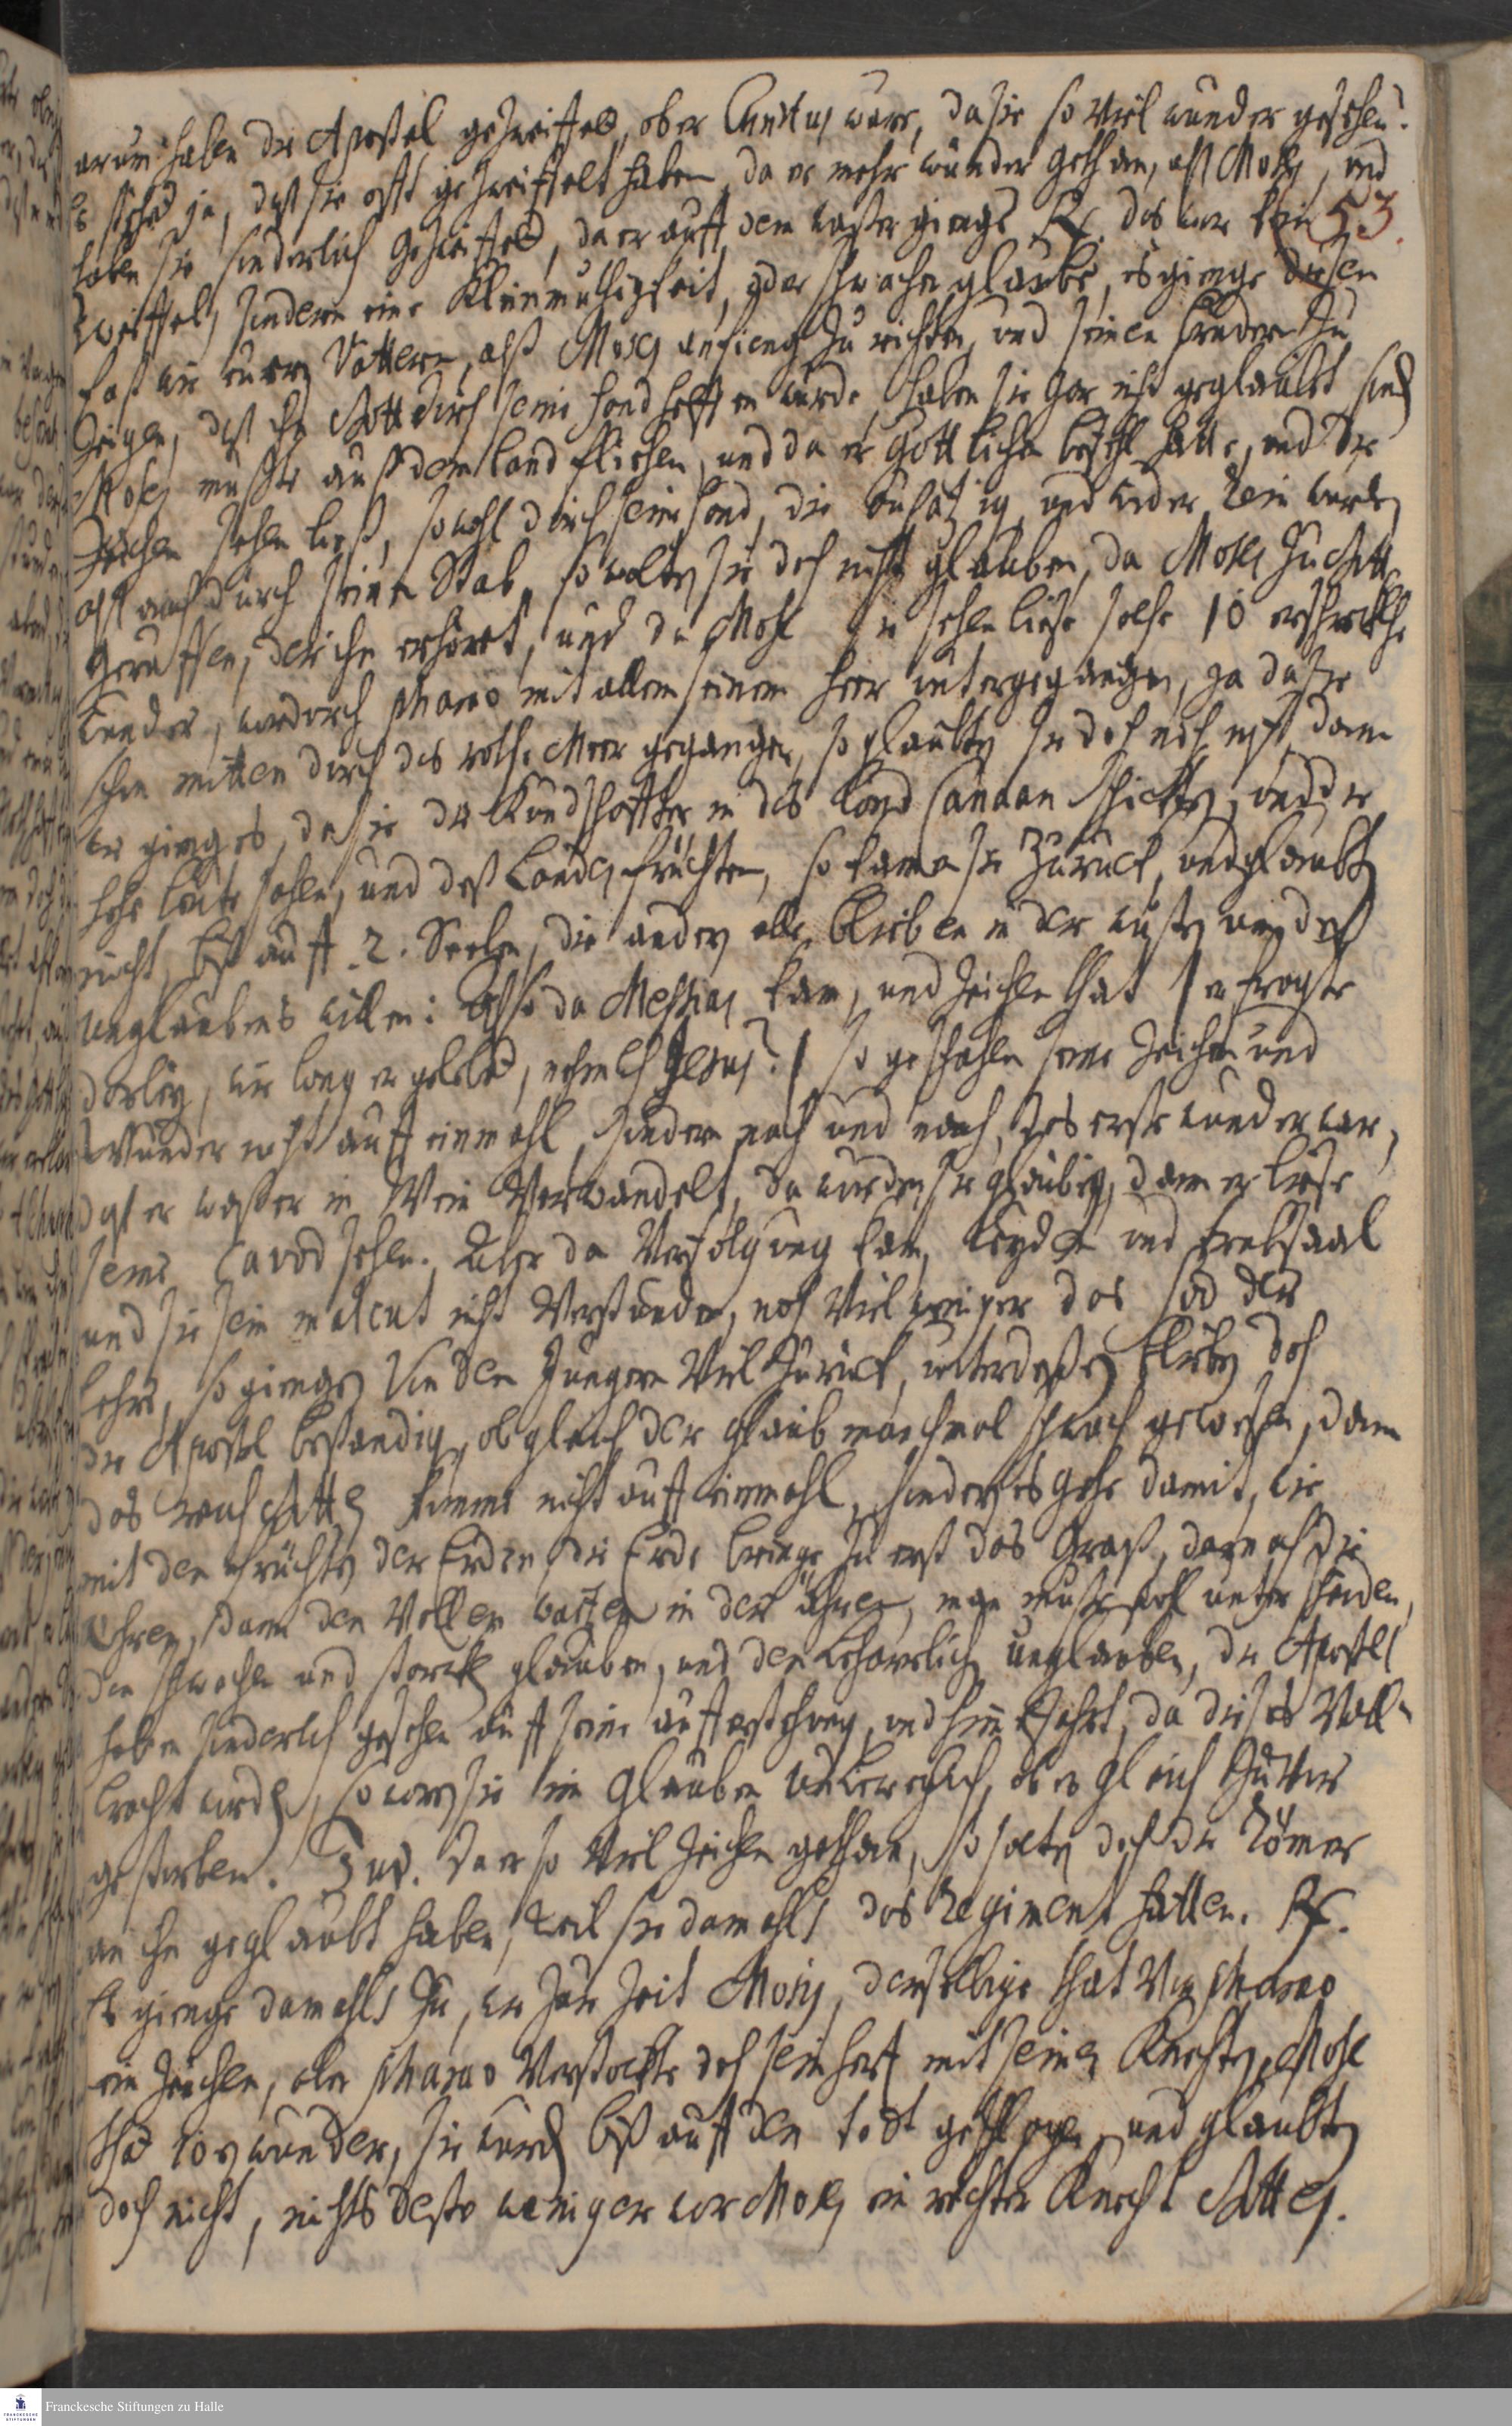 arum haben die Apostel gezweiffelt, ob er Christus wäre, da sie so viel wunder gesehen?
Es stehet ja, daß sie offt gezweiffelt haben, da er mehr wunder gethan, alß Moses, und
haben sie sonderlich gezweiffelt, da er auff dem waßer gienge Rx. das war kein
53.
Zweiffel, sondern eine Kleinmüthigkeit, oder schwacher glaube, es gienge diesen
fast wie euren Vättern, alß Moses anfieng zu richten, und seinen brüdern zu
Zeigen, daß ihn Gott durch seine hand helffen würde, haben sie gar nicht geglaubt, sond.
Moses mußte auß dem land fliehen, und da er Göttlichen befehl hatte, und die
Zeichen sehen ließ, sowohl durch seine hand, die außätzig und wieder rein wurde,
alß auch durch seinen Stab, so wolten sie doch nicht glauben, da Moses zu Gott
geruffen, der ihn erhöret, und da Mose sie sehen liese solche 10 erschreckliche
wunder, wordurch Pharao mit allem seinem heer untergegangen, ja da sie
schon mitten durch das rothe Meer gegangen, so glaubten sie doch noch nicht, dann
wie gieng es, da sie die Kundschaffter in das land Canaan schickten, und die
hohe leute sahen, und deß Landes früchten, so kamen sie zurück, und glaubten
nicht, biß auff 2. Seelen, die andern alle blieben in der wüsten um deß
unglaubens willen: Also da Messias kam, und Zeichen that / er fragte
darbey, wie lang er gelebt, nehmlich Jesus? / so geschahen seine Zeichen und
Wunder nicht auff einmahl, sondern nach und nach, das erste wunder war,
daß er waßer in Wein Verwandelt, da wurden sie gläubig, dann er liese
seine Cavod sehen. Aber da Verfolgung kam, Leyden und trübsaal
und sie sein malcut nicht Verstunden, noch viel weniger das sod der
lehre, so giengen Von den Jüngern Viel zurück, unterdeßen blieben doch
die Apostel beständig, ob gleich der glaub manchmal schwach gewesen, dann
das reich Gottes komme nicht auff einmahl, sondern es gehe damit, wie
mit den früchten der Erden, die Erde bringe zu erst das Graß, darnach die
ähren, dann den Vollen waitzen in den ähren, man müste wohl unterscheiden,
den schwachen und starcken glauben, und den beharrlichen unglauben, die Apostel
haben sonderlich gesehen auff seine aufferstehung, und himmelfahrt, da dieses Voll-
bracht wurde, so waren sie im Glauben unbeweglich, ob er gleich zuvor
gestorben. Jud. Da er so viel Zeichen gethan, so solten doch die Römer
an ihn geglaubt haben, weil sie damahls das Regiment hatten. Rx.
Es gienge damahls zu, wie zur Zeit Mosis, derselbige that Vor Pharao
ein Zeichen, aber Pharao Verstockte doch sein hertz mit seinen Knechten, Mose
that 10 wunder, sie wurden biß auff den todt geschlagen, und glaubten
doch nicht, nichts desto weniger war Moses ein rechter Knecht Gottes.
Franckesche Stiftungen zu Halle